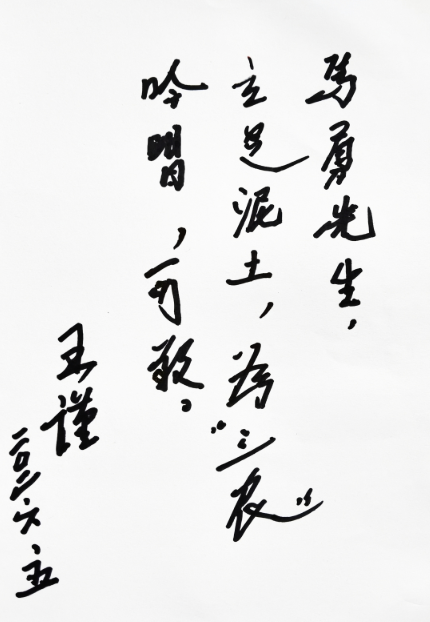 马勇先生，
立足泥土，为“三农”
吟唱，可敬。
王谨
二〇二六、五